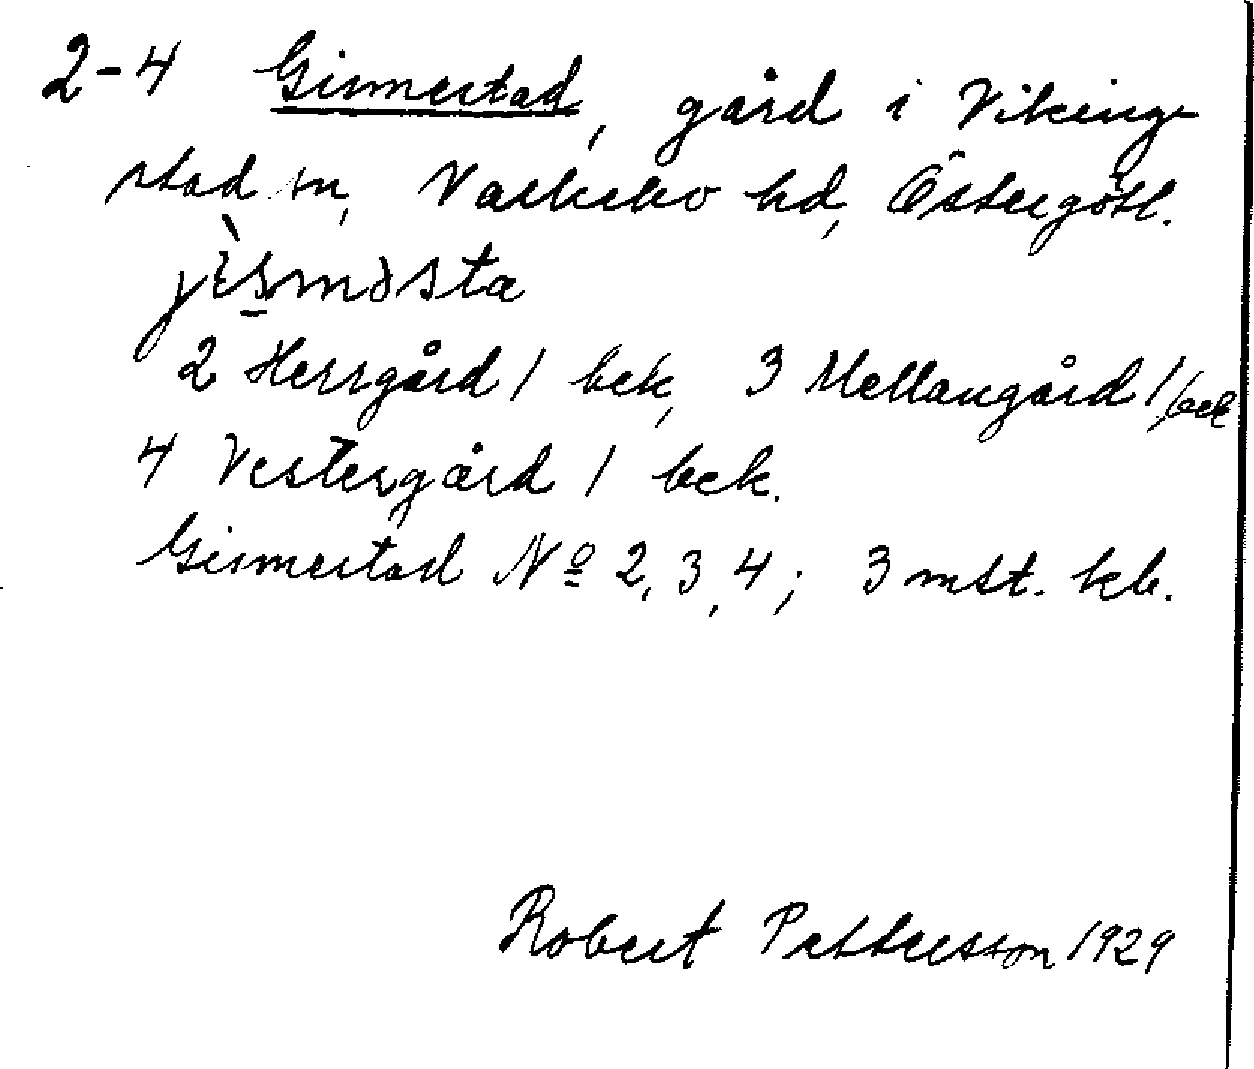 2-4 Gismestad, gård i Viking-
stad sn, Valkebo hd, Östergötl.
jìsməsta
2 Herrgård / bek, 3 Mellangård 1/bek
4 Vestergård / bek.
Gismestad Nº 2, 3, 4; 3 mst. kb.
Robert Pettersson 1929